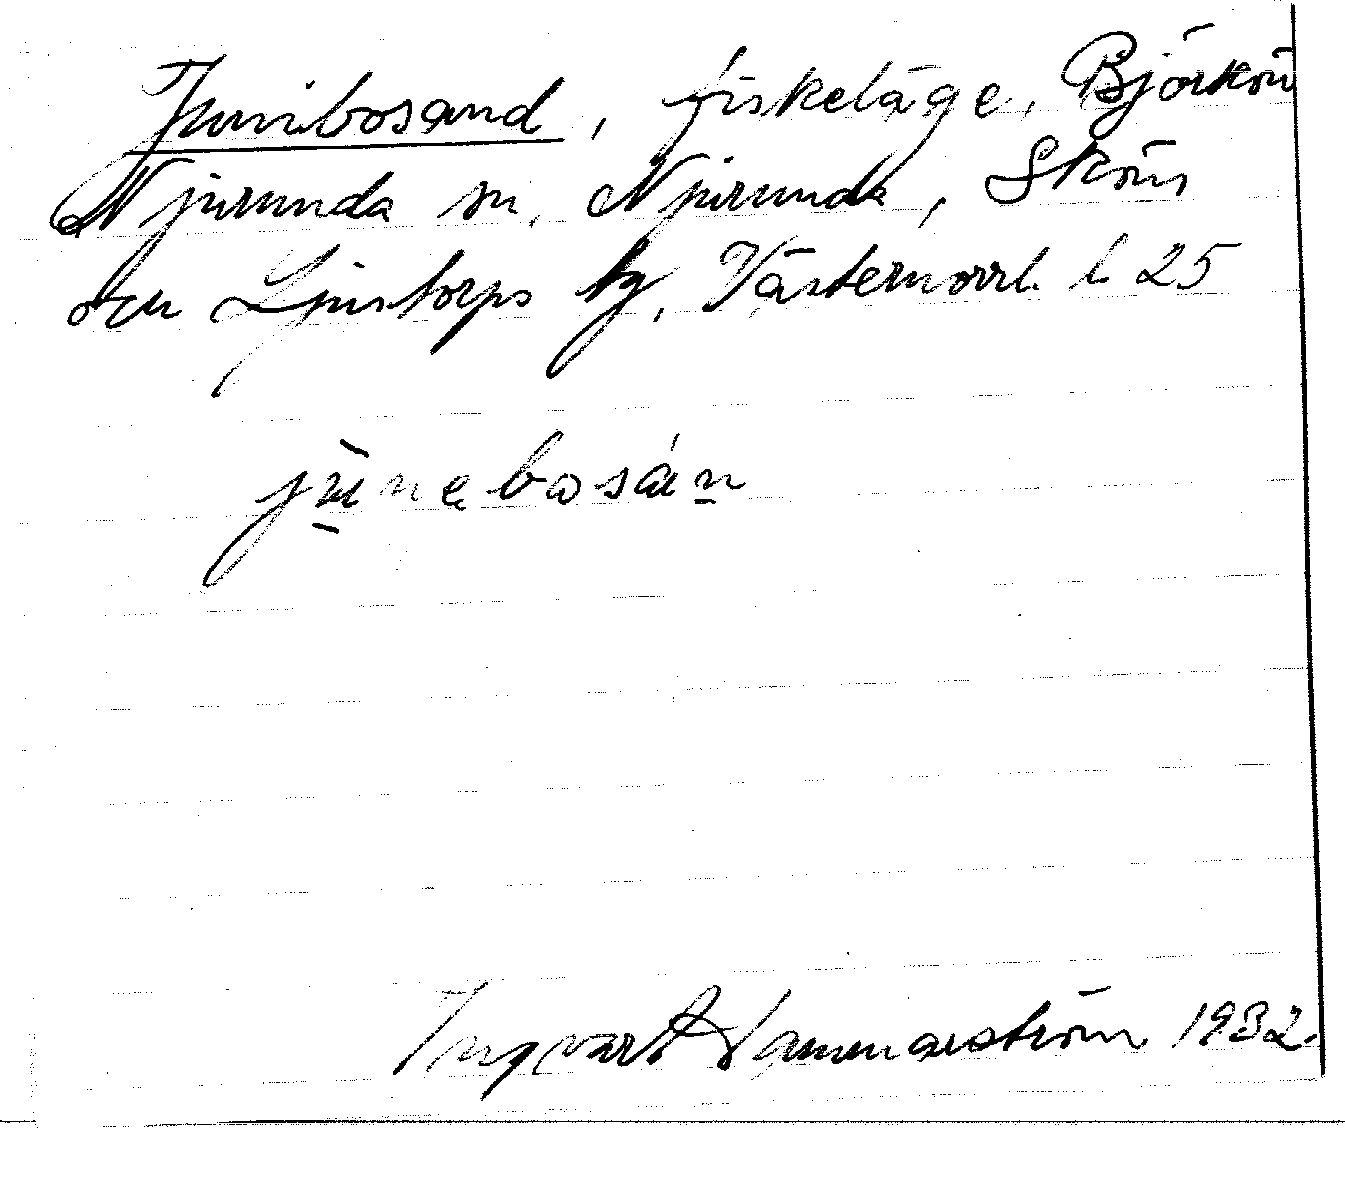 Junibosand, fiskeläge, Björkön
Njurunda sn, Njurunda, Sköns
och Ljustorps tg, Västernorrl. l 25
jùnebosán
Ingvart Hammarström 1932.